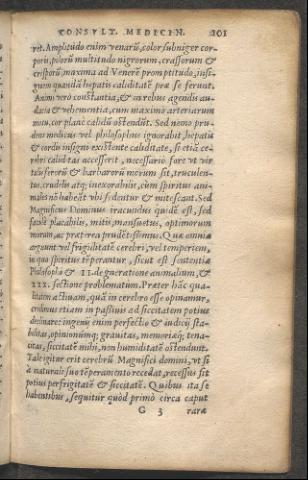 CONSVLT. MEDICIN. 101
ret. Amplitudo enim venarũ, color subniger cor-
poris, pilorũ multitudo nigrorum, crassorum &
crisporũ, maxima ad Venerẽ promptitudo, insi-
gnem quandã hepatis caliditatẽ præ se ferunt.
Animi verò constantia, & in rebus agendis au-
dacia & vehementia, cum maximo arteriarum
motu, cor planè calidũ ostendũt. Sed nemo pru-
dens medicus vel philosophus ignorabit, hepatis
& cordis insigni existente caliditate, si etiã ce-
rebri caliditas accesserit, necessariò fore vt vir
talis ferorũ & barbarorũ morum sit, truculen-
tus, crudelis atq; inexorabilis, cùm spiritus ani-
males nõ habeãt vbi sedentur & mitescant. Sed
Magnificus Dominus iracundus quidẽ est, sed
facilè placabilis, mitis, mansuetus, optimorum
morum, ac præterea prudẽtissimus. Quæ omnia
arguunt vel frigiditatẽ cerebri, vel temperiem,
in quo spiritus tẽperantur, sicut est sententia
Philosophi & II. de gneratione animalium, &
IIII. sectione problematum. Præter hãc qua-
litatem actiuam, quã in cerebro esse opinamur,
credimus etiam in passiuis ad siccitatem potius
declinare: ingenij enim perfectio & iudicij sta-
bilitas, opinionumq; grauitas, memoriæq; tena-
citas, siccitatẽ mihi, non humiditatẽ ostendunt.
Tale igitur erit cerebrũ Magnifici domini, vt si
à naturali suo tẽperamento recedat, recessus sit
potius per frigitatẽ & siccitatẽ. Quibus ita se
habentibus, sequitur quòd primò circa caput
G 3 raræ